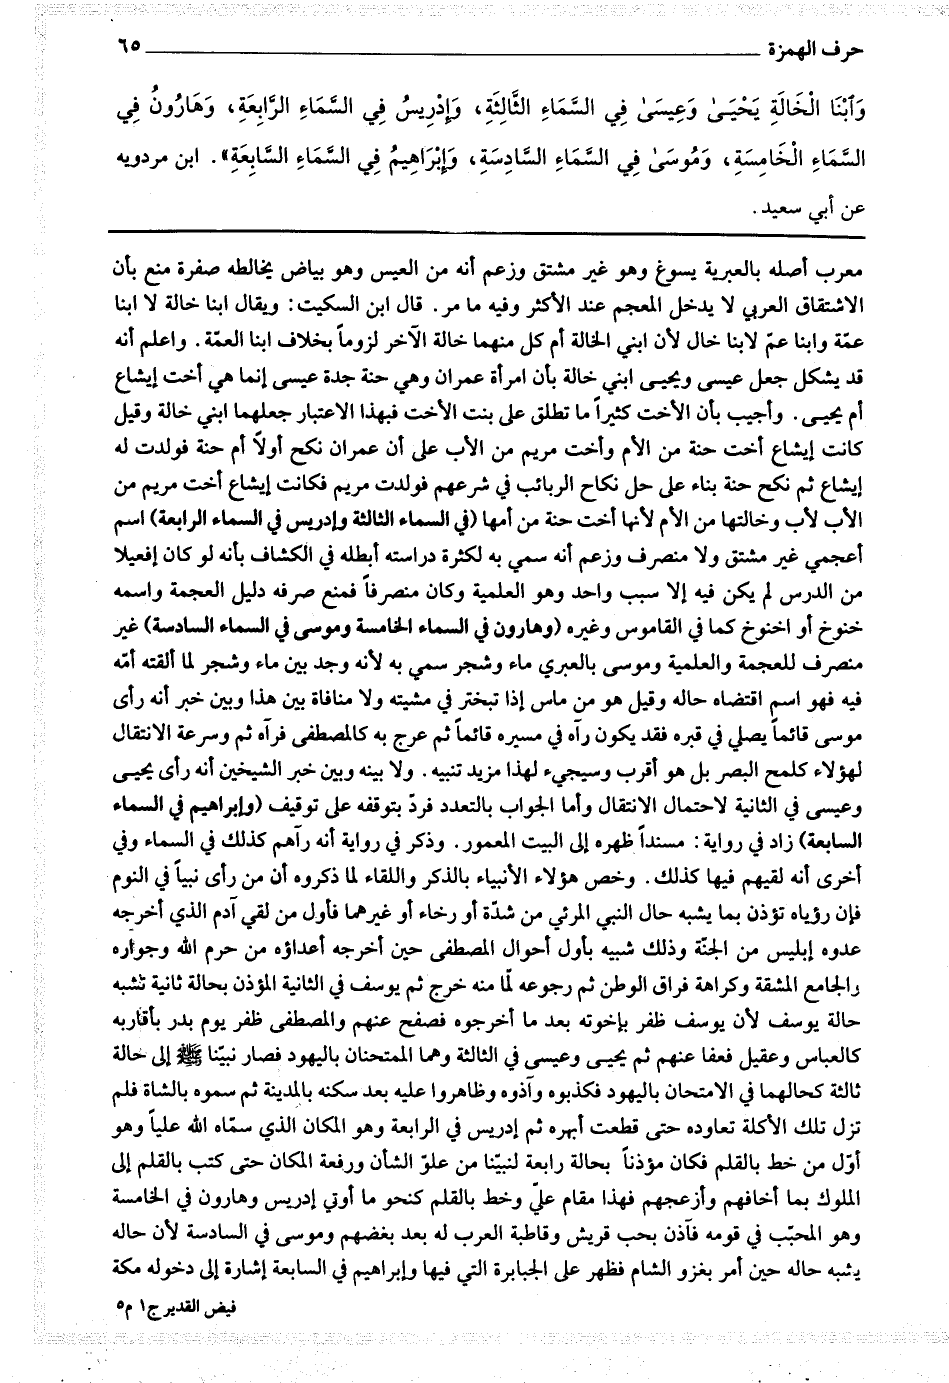 حرف الهمزة ــــــــــــــــــــ ٦٥
وَٱبْنَا الْخَالَةِ يَحْيَىٰ وَعِيسَىٰ فِي السَّمَاءِ الثَّالِثَةِ، وَإِدْرِيسُ فِي السَّمَاءِ الرَّابِعَةِ، وَهَارُونُ فِي
السَّمَاءِ الْخَامِسَةِ، وَمُوسَىٰ فِي السَّمَاءِ السَّادِسَةِ، وَإِبْرَاهِيمُ فِي السَّمَاءِ السَّابِعَةِ». ابن مردويه
عن أبي سعيد.
معرب أصله بالعبرية يسوغ وهو غير مشتق وزعم أنه من العيس وهو بياض يخالطه صفرة منع بأن
الاشتقاق العربي لا يدخل المعجم عند الأكثر وفيه ما مر. قال ابن السكيت: ويقال ابنا خالة لا ابنا
عمّة وابنا عمّ لابنا خال لأن ابني الخالة أم كل منهما خالة الآخر لزوماً بخلاف ابنا العمّة. واعلم أنه
قد يشكل جعل عيسى ويحيى ابني خالة بأن امرأة عمران وهي حنة جدة عيسى إنما هي أخت إيشاع
أم يحيى. وأجيب بأن الأخت كثيراً ما تطلق على بنت الأخت فبهذا الاعتبار جعلهما ابني خالة وقيل
كانت إيشاع أخت حنة من الأم وأخت مريم من الأب على أن عمران نكح أولاً أم حنة فولدت له
إيشاع ثم نكح حنة بناء على حل نكاح الربائب في شرعهم فولدت مريم فكانت إيشاع أخت مريم من
الأب لأب وخالتها من الأم لأنها أخت حنة من أمها (في السماء الثالثة وإدريس في السماء الرابعة) اسم
أعجمي غير مشتق ولا منصرف وزعم أنه سمي به لكثرة دراسته أبطله في الكشاف بأنه لو كان إفعيلا
من الدرس لم يكن فيه إلا سبب واحد وهو العلمية وكان منصرفاً فمنع صرفه دليل العجمة واسمه
خنوخ أو اخنوخ كما في القاموس وغيره (وهارون في السماء الخامسة وموسى في السماء السادسة) غير
منصرف للعجمة والعلمية وموسى بالعبري ماء وشجر سمي به لأنه وجد بين ماء وشجر لما ألقته أمّه
فيه فهو اسم اقتضاه حاله وقيل هو من ماس إذا تبختر في مشيته ولا منافاة بين هذا وبين خبر أنه رأى
موسى قائماً يصلي في قبره فقد يكون رآه في مسيره قائماً ثم عرج به كالمصطفى فرآه ثم وسرعة الانتقال
لهؤلاء كلمح البصر بل هو أقرب وسيجيء لهذا مزيد تنبيه. ولا بينه وبين خبر الشيخين أنه رأى يحيى
وعيسى في الثانية لاحتمال الانتقال وأما الجواب بالتعدد فردّ بتوقفه على توقيف (وإبراهيم في السماء
السابعة) زاد في رواية: مسنداً ظهره إلى البيت المعمور. وذكر في رواية أنه رآهم كذلك في السماء وفي
أخرى أنه لقيهم فيها كذلك. وخص هؤلاء الأنبياء بالذكر واللقاء لما ذكروه أن من رأى نبياً في النوم
فإن رؤياه تؤذن بما يشبه حال النبي المرئي من شدّة أو رخاء أو غيرهما فأول من لقي آدم الذي أخرجه
عدوه إبليس من الجنّة وذلك شبيه بأول أحوال المصطفى حين أخرجه أعداؤه من حرم الله وجواره
والجامع المشقة وكراهة فراق الوطن ثم رجوعه لمّا منه خرج ثم يوسف في الثانية المؤذن بحالة ثانية تشبه
حالة يوسف لأن يوسف ظفر بإخوته بعد ما أخرجوه فصفح عنهم والمصطفى ظفر يوم بدر بأقاربه
كالعباس وعقيل فعفا عنهم ثم يحيى وعيسى في الثالثة وهما الممتحنان باليهود فصار نبيّنا ﷺ إلى حالة
ثالثة كحالهما في الامتحان باليهود فكذبوه وآذوه وظاهروا عليه بعد سكنه بالمدينة ثم سموه بالشاة فلم
تزل تلك الأكلة تعاوده حتى قطعت أبهره ثم إدريس في الرابعة وهو المكان الذي سمّاه الله علياً وهو
أوّل من خط بالقلم فكان مؤذناً بحالة رابعة لنبيّنا من علوّ الشأن ورفعة المكان حتى كتب بالقلم إلى
الملوك بما أخافهم وأزعجهم فهذا مقام عليّ وخط بالقلم كنحو ما أوتي إدريس وهارون في الخامسة
وهو المحبّب في قومه فآذن بحب قريش وقاطبة العرب له بعد بغضهم وموسى في السادسة لأن حاله
يشبه حاله حين أمر بغزو الشام فظهر على الجبابرة التي فيها وإبراهيم في السابعة إشارة إلى دخوله مكة
فيض القدير ج١ م٥